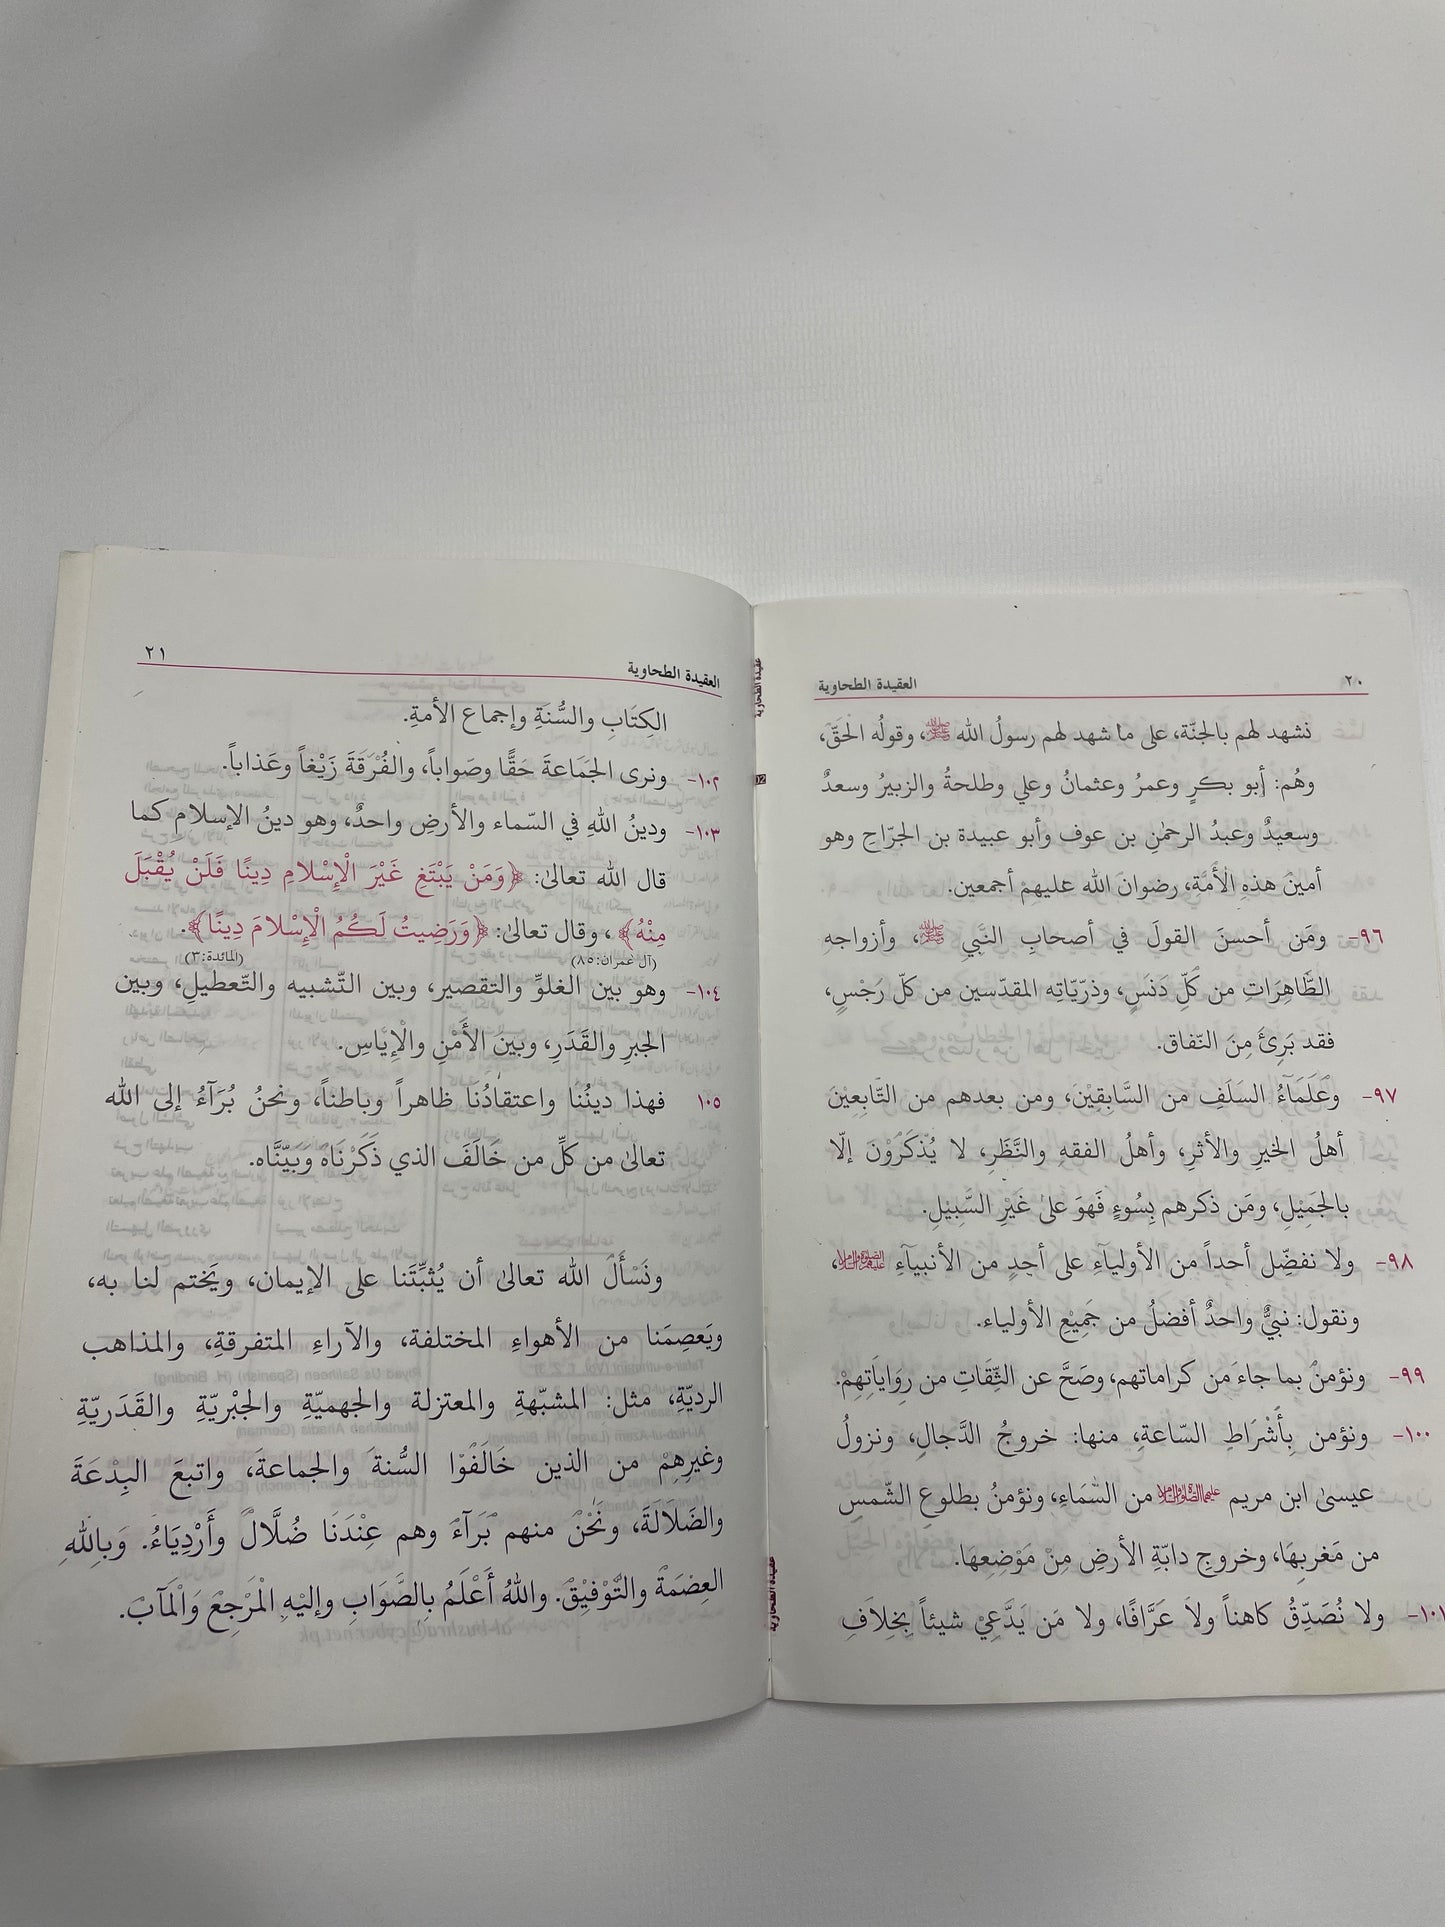 ٢٠
العقيدة الطحاوية
نشهد لهم بالجنّة، على ما شهد لهم رسولُ الله ﷺ، وقولُه الحَقّ،
وهُم: أبو بكرٍ وعمرُ وعثمانُ وعلي وطلحةُ والزبيرُ وسعدٌ
وسعيدٌ وعبدُ الرحمٰنِ بن عوف وأبو عبيدة بن الجرّاحِ وهو
أمينُ هذهِ الْأُمَّةِ، رضوانَ الله عليهمْ أجمعين.
٩٦- ومَن أحسنَ القولَ في أصحابِ النَّبيِ ﷺ، وأزواجِهِ
الطَّاهِرَاتِ من كَلِّ دَنَسٍ، وذرّيّاته المقدّسين من كلّ رَجْسٍ،
فقد بَرِئَ مِنَ النّفاق.
٩٧- وعُلَمَاءُ السَلَفِ من السَّابقِيْنَ، ومن بعدهم من التَّابِعِيْنَ
أهلُ الخيرِ والأثرِ، وأهلُ الفقهِ والنَّظَرِ، لا يُذْكَرُوْنَ إلّا
بالجَمِيْلِ، ومَن ذكرهم بِسُوءٍ فَهُوَ علىٰ غَيْرِ السَّبِيْلِ.
٩٨- ولا نفضّل أحداً من الأولياءِ على أحدٍ من الأنبياءِ عليهم الصلوة والسلام،
ونقول: نبيٌّ واحدٌ أفضلُ من جَمِيْعِ الأولياء.
٩٩- ونؤمنُ بما جاءَ مَن كراماتهم، وصَحَّ عن الثِّقَاتِ من رِوَايَاتِهِمْ.
١٠٠- ونؤمن بِأَشْرَاطِ السّاعةِ، منها: خروجُ الدَّجالِ، ونزولُ
عيسىٰ ابن مريم عليهما الصلوة والسلام من السَّمَاءِ، ونؤمنُ بطلوعِ الشّمسِ
من مَغربِهَا، وخروجِ دابّةِ الأرضِ مِنْ مَوْضِعِهَا.
١٠١- ولا نُصَدِّقُ كاهناً ولاَ عَرَّافًا، ولا مَن يَدَّعِيْ شيئاً بِخِلَافِ
عقيدة الطحاوية
02
عقيدة الطحاوية
٢١
العقيدة الطحاوية
الكِتَابِ والسُّنَةِ وإجماع الأمةِ.
١٠٢- ونرى الجَمَاعةَ حَقًّا وصَواباً، والفُرْقَةَ زَيْغاً وعَذاباً.
١٠٣- ودينُ اللهِ في السّماء والأرضِ واحدٌ، وهو دينُ الإسلامِ كما
قال الله تعالىٰ: ﴿وَمَنْ يَبْتَغِ غَيْرَ الْإِسْلامِ دِينًا فَلَنْ يُقْبَلَ
مِنْهُ﴾، وقال تعالىٰ: ﴿وَرَضِيتُ لَكُمُ الْإِسْلامَ دِينًا﴾.
(آل عمران: ٨٥) (المائدة: ٣)
١٠٤- وهو بين الغلوِّ والتقصير، وبين التّشبيه والتّعطيلِ، وبين
الجبرِ والقَدَرِ، وبين الأَمْنِ والْإيَاسِ.
١٠٥ فهذا دينُنا واعتقادُنا ظاهراً وباطناً، ونحنُ بُرَآءُ إلى الله
تعالىٰ من كلِّ من خَالَفَ الذي ذَكَرْنَاه وَبَيّنَّاه.
ونَسْأَلُ الله تعالىٰ أن يُثبِّتَنا على الإيمان، ويَختم لنا به،
ويَعصِمَنا من الأهواءِ المختلفة، والآراءِ المتفرقةِ، والمذاهب
الرديّةِ، مثل: المشبّهةِ والمعتزلة والجهميّةِ والجَبْريّةِ والقَدَريّةِ
وغيرِهِمْ من الذين خَالَفُوْا السُّنةَ والجماعةَ، واتبعَ البِدْعَةَ
والضَلَالَةَ، ونَحْنُ منهم بَرَآءٌ وهم عِنْدَنَا ضُلَّالٌ وأَرْدِيَاءُ. وَبِاللّٰهِ
العِصْمَةُ والتَّوْفِيْقُ. واللهُ أَعْلَمُ بِالصَّوَابِ وإليْهِ الْمَرْجِعُ وَالْمَآبُ.